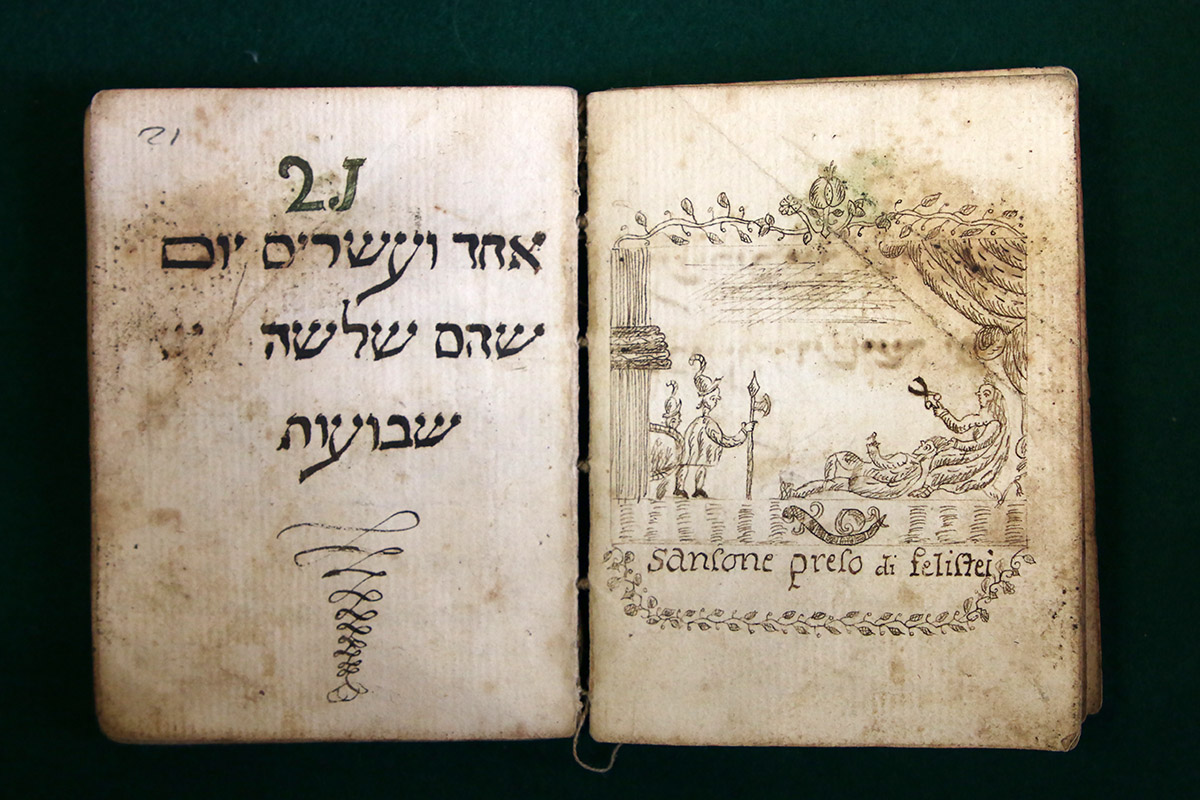 21
21
אחד ועשרים יום
שהם שלשה
שבועות
sansone preso di felistei